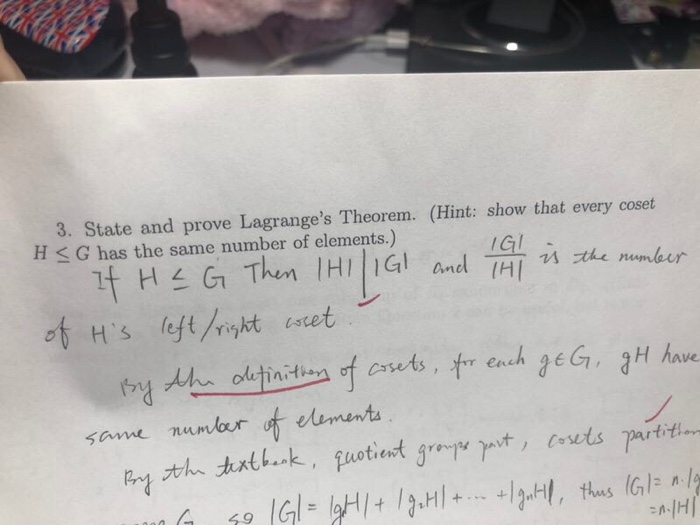 3. State and prove Lagrange's Theorem. (Hint: show that every coset
H ≤ G has the same number of elements.)
If H ≤ G Then |H| | |G| and |G|/|H| is the number
of H's left/right coset.
By the definition of cosets, for each g∈G, gH have
same number of elements.
By the textbook, quotient groups part, cosets partition
G so |G| = |g₁H| + |g₂H| + ... + |gₙH|, thus |G| = n·|g
= n·|H|